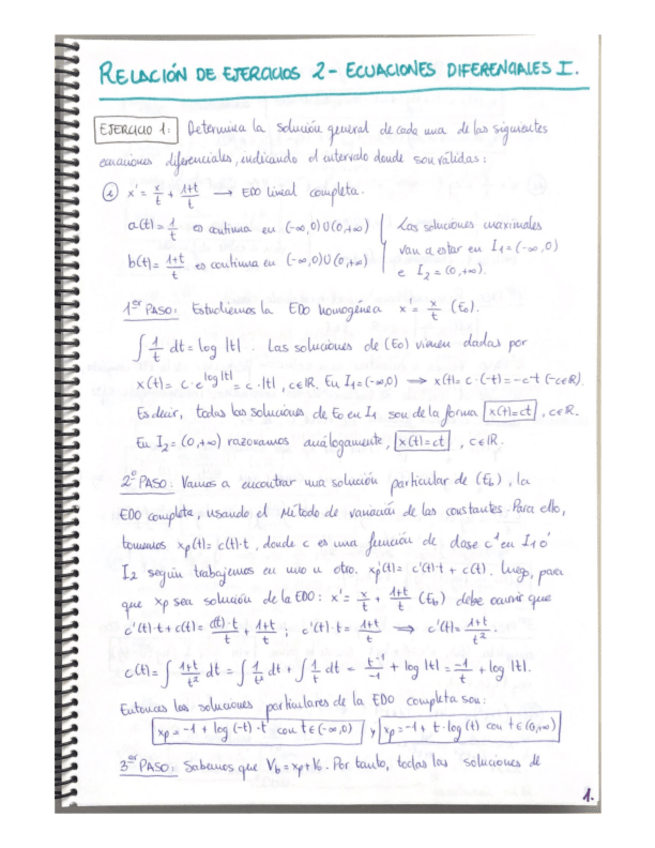 RELACIÓN DE EJERCICIOS 2 - ECUACIONES DIFERENCIALES I.
EJERCICIO 1: Determina la solución general de cada una de las siguientes
ecuaciones diferenciales, indicando el intervalo donde son válidas:
x' = x/t + 1+t/t → EDO lineal completa.
a(t) = 1/t es continua en (-∞,0)∪(0,+∞) | Las soluciones maximales
van a estar en I₁=(-∞,0)
b(t) = 1+t/t es continua en (-∞,0)∪(0,+∞) | e I₂=(0,+∞).
1er PASO: Estudiemos la EDO homogénea x = x/t (E₀).
∫ 1/t dt = log |t|. Las soluciones de (E₀) vienen dadas por
x(t) = c·e^log|t| = c·|t|, c∈ℝ. En I₁=(-∞,0) → x(t) = c·(-t) = -c·t (-c∈ℝ).
Es decir, todas las soluciones de E₀ en I₁ son de la forma x(t)=ct, c∈ℝ.
En I₂=(0,+∞) razonamos análogamente, x(t)=ct, c∈ℝ.
2º PASO: Vamos a encontrar una solución particular de (E_b), la
EDO completa, usando el Método de variación de las constantes. Para ello,
tomamos xp(t) = c(t)·t, donde c es una función de clase c¹ en I₁ ó
I₂ según trabajemos en uno u otro. xp'(t) = c'(t)·t + c(t). Luego, para
que xp sea solución de la EDO: x' = x/t + 1+t/t (E_b) debe ocurrir que
c'(t)·t + c(t) = c(t)·t/t + 1+t/t ; c'(t)·t = 1+t/t ⟹ c'(t) = 1+t/t².
c(t) = ∫ 1+t/t² dt = ∫ 1/t² dt + ∫ 1/t dt = t⁻¹/-1 + log |t| = -1/t + log |t|.
Entonces las soluciones particulares de la EDO completa son:
xp = -1 + log(-t)·t con t∈(-∞,0) y xp = -1 + t·log(t) con t∈(0,+∞)
3er PASO: Sabemos que V_b = xp + V₀. Por tanto, todas las soluciones de
1.